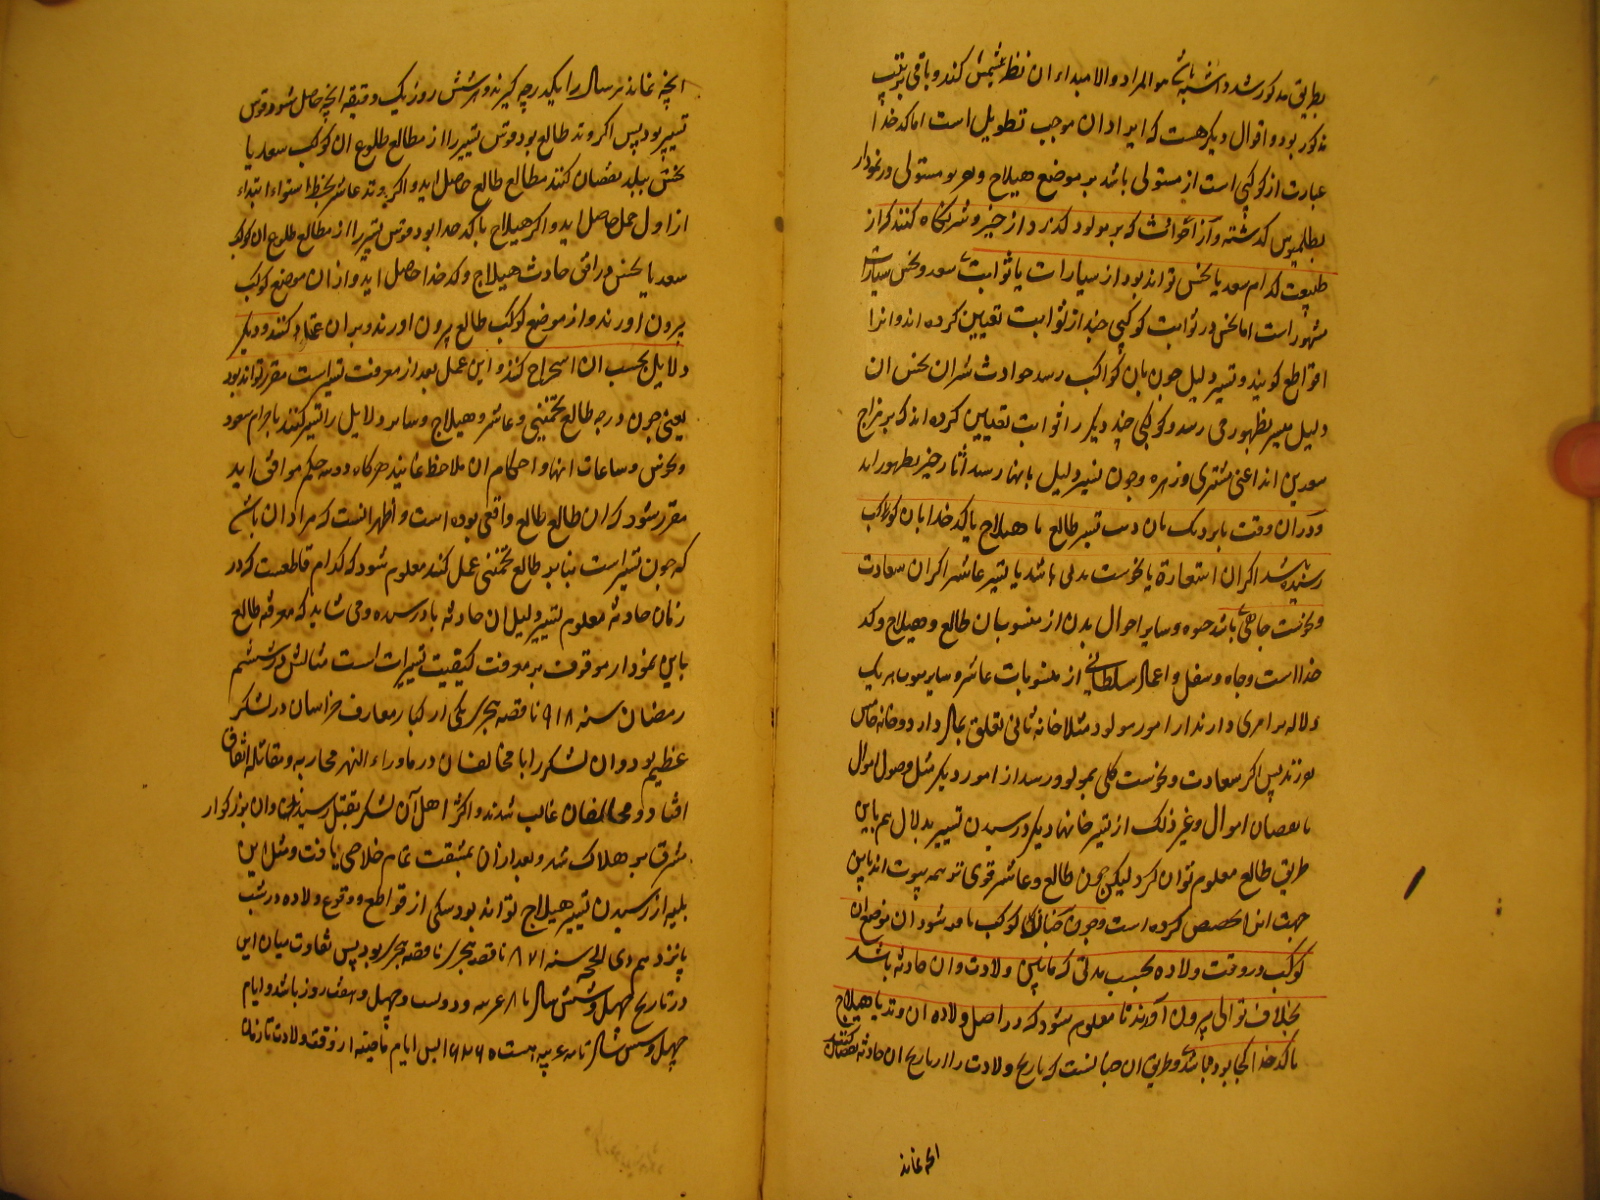 بطریق مذکور شد و اشبه بانچ هو المراد والا مبداء ان نظر عشمش کند و باقی بترتیب
مذکور بود و اقوال دیکر هست که ایراد ان موجب تطویل است اما کدخدا
عبارت از کوکبی است از مستولی باشد بر موضع هیلاج و هو بو مستولی در نمودار
بطلمیوس کذشته و آثار حوادث که بر مولود کذرد از خیر و شر نکاه کنند کز از
طبیعت کدام سعد یا نحس تواند بود از سیارات یا ثوابت سعد و نحس سیارات
مشهور است اما نحس در ثوابت کوکبی چند از ثوابت تعیین کرده اند و انرا
قواطع کویند و تسییر دلیل چون بان کواکب رسد حوادث شر ان نحس ان
دلیل میسر بظهور می رسد و کوکبی چند دیکر را ثوابت تعیین کرده اند که بر مزاج
سعدین اند اعنی مشتری و زهره و چون تسییر دلیل بانها رسد آثار خیر بظهور اید
و در ان وقت یا نزدیک بان تسییر طالع یا هیلاج یا کدخدا بان کواکب
رسیده باشد اکر ان استعارة یا نحوست بدنی باشد یا تسییر عاشر اکر ان سعادت
و نحوست جاهی باشد چه وسایر احوال بدن از منسوبان طالع و هیلاج و کد
خدا است و جاه و سفل و اعمال سلطانی از منسوبات عاشر و سایر بیوت هر یک
دلاله بر امری دارند از امور مولود مثلا خانه ثانی تعلق بمال دارد و خانه خامس
بفرزند پس اکر سعادت و نحوست کلی بمولود رسد از امور دیکر مثل وصول اموال
یا نقصان اموال و غیر ذلک از تسییر خانها دیکر در رسیدن تسییر بدلایل هم باین
طریق طالع معلوم توان کرد لیکن چون طالع و عاشر قوی تر همه بیوت اند باین
جهت انرا تخصیص کرده است و چون چنان کوکب یافته شود ان موضع ان
کوکب در وقت ولاده بحسب مدتی که مابین ولادت و ان حادثه باشد
بخلاف توالی بیرون آورند تا معلوم شود که در اصل ولاده ان وتد یا هیلاج
یا کدخدا کجا بوده باشد و طریق ان چنانست که تاریخ ولادت را از تاریخ ان حادثه نقصان کنند
انچه نماند
انچه نماند هر سال را یکدرجه کیرند و هر شش روز یک دقیقه انچه حاصل شود قوس
تسییر بود پس اکر وتد طالع بود قوس تسییر را از مطالع طلوع ان کوکب سعد یا
نحس ببلد نقصان کنند مطالع طالع حاصل اید و اکر وتد عاشر بخط استواء ابتداء
از اول عمل حاصل اید و اکر هیلاج یا کدخدا بود قوس تسییر را از مطالع طلوع ان کوکب
سعد یا نحس در افق حادث هیلاج و کدخدا حاصل اید و از ان موضع کوکب
بیرون اورند و از موضع کوکب طالع بیرون اورند و بر ان عقاد کنند و دیکر
دلایل بحسب ان استخراج کنند و این عمل بعد از معرفت تسییر است مقرر تواند بود
یعنی چون درجه طالع تخمینی و عاشر و هیلاج و سایر دلایل را تسییر کنند باجرام سعود
و نحوس و ساعات انها و احکام ان ملاحظ نمایند هرکاه دو سه حکم موافق اید
مقرر شود که ان طالع طالع واقعی بوده است و اظهر انست که مراد ان باشد
که چون تسییر است بنا بر طالع تخمینی عمل کنند معلوم شود که کدام قاطعست که در
زمان حادثه معلوم تسییر دلیل ان حادثه باو رسیده و می شاید که معرفه طالع
باین نمودار موقوف بر معرفت کیفیت تسییرات است مثالش در ششم
رمضان سنه ۹۱۸ ناقصه هجری یکی از کبار معارف خراسان در لشکر
عظیم بود و ان لشکر را با مخالفان در ماوراء النهر محاربه و مقاتله اتفاق
افتاد و مخالفان غالب شدند و اکثر اهل آن لشکر بقتل رسیدند و ان بزرکوار
مشرف بر هلاک شد و بعد از ان بمشقت تمام خلاصی یافت و مثل این
بلیه از رسیدن تسییر هیلاج تواند بود بیکی از قواطع و وقوع ولاده در شب
پانزدهم ذی الحجه سنه ۸۷۱ ناقصه هجری ناقصه هجری بود پس تفاوت میان این
دو تاریخ چهل و شش سال و دویست و چهل و هفت روز باشد و ایام
چهل و شش سال ایام ماضیه از وقت ولادت تا زمان